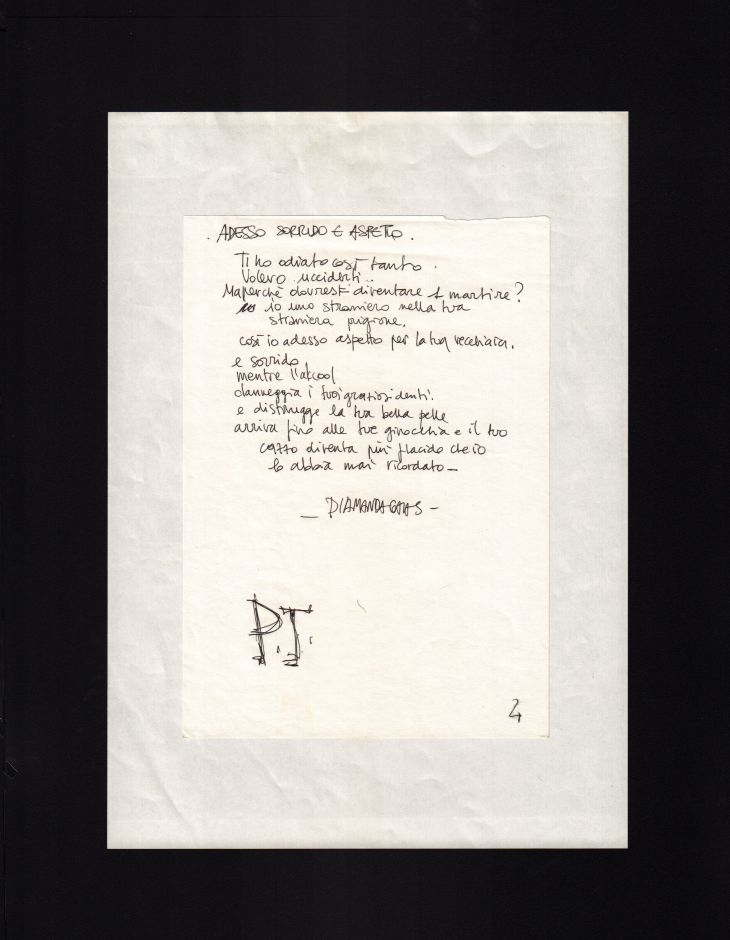 . ADESSO SORRIDO E ASPETTO .
Ti ho odiato così tanto .
Volevo ucciderti ..
Ma perché dovresti diventare 1 martire ?
io uno straniero nella tua
straniera prigione.
così io adesso aspetto per la tua vecchiaia.
e sorrido
mentre l'alcool
danneggia i tuoi graziosi denti.
e distrugge la tua bella pelle
arriva fino alle tue ginocchia e il tuo
cazzo diventa più flacido che io
lo abbia mai ricordato _
_ DIAMANDA GALAS -
P.T.
4